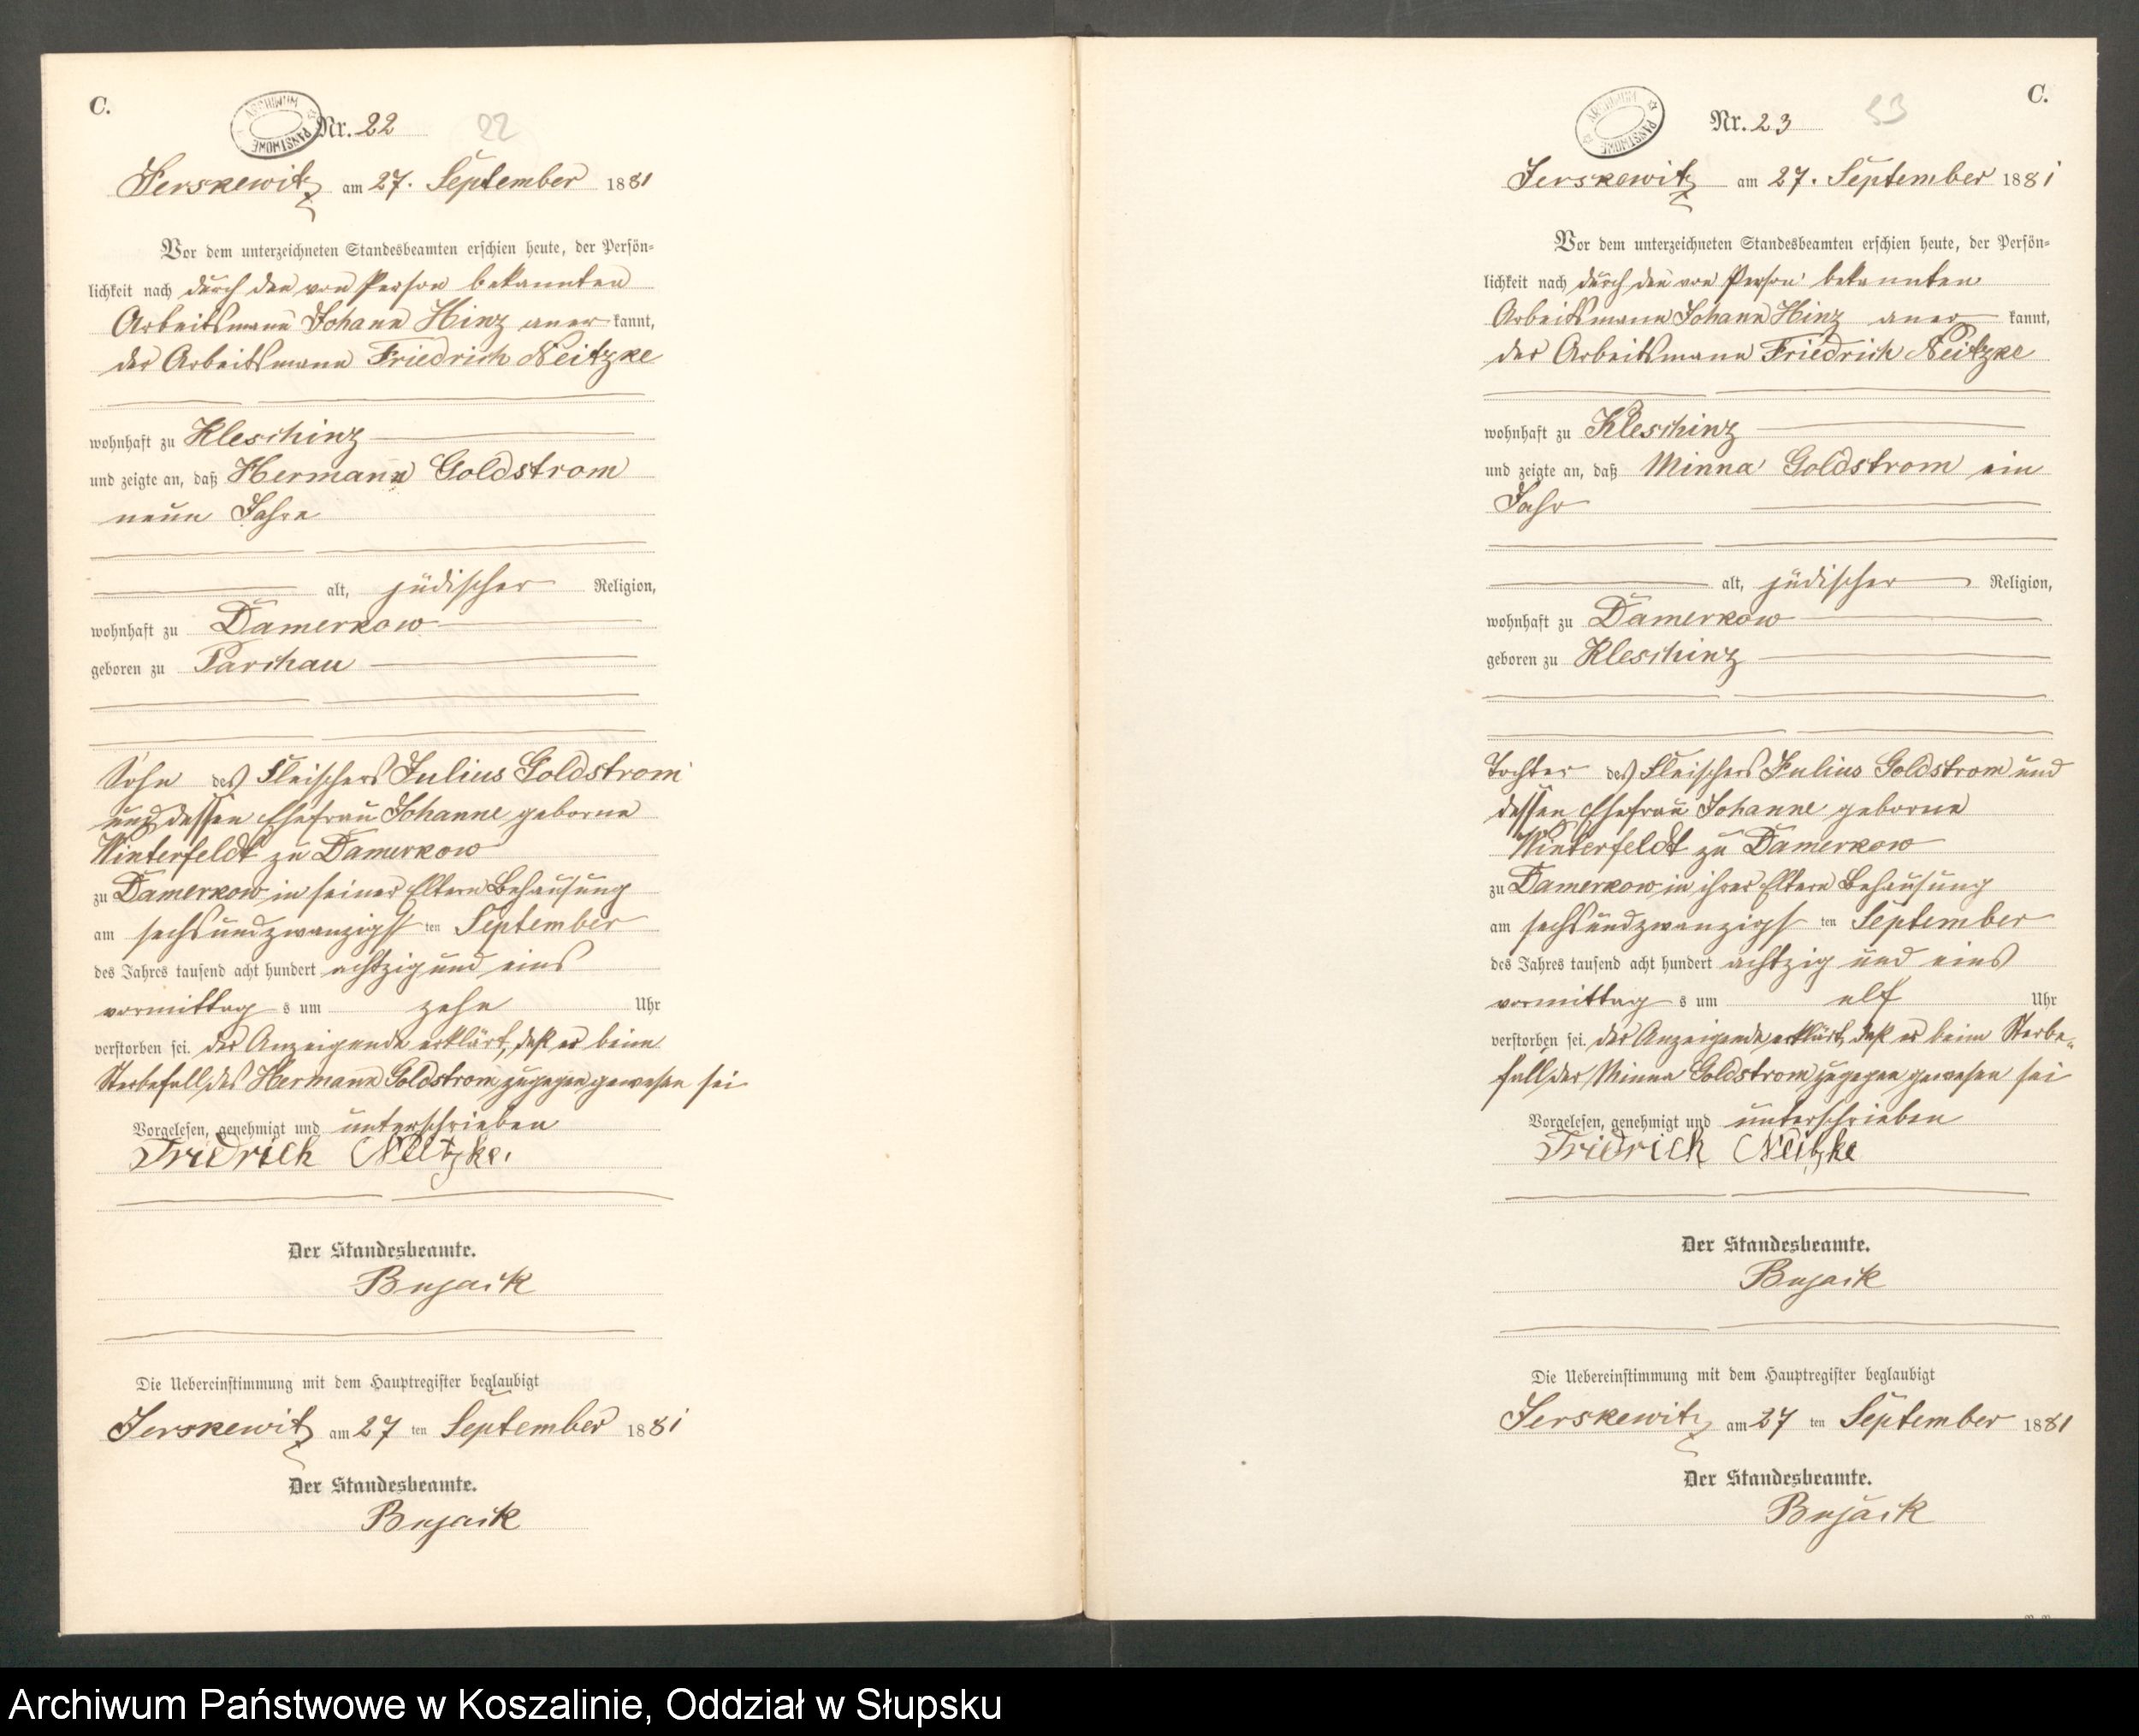 C.
ARCHIWUM PAŃSTWOWE
Nr. 22
22
Jerskewitz am 27. September 1881
Vor dem unterzeichneten Standesbeamten erschien heute, der Persön-
lichkeit nach durch den von Person bekannten
Arbeitsmann Johann Hinz aner kannt,
der Arbeitsmann Friedrich Neitzke
wohnhaft zu Kleschinz
und zeigte an, daß Hermann Goldstrom
neun Jahre
alt, jüdischer Religion,
wohnhaft zu Damerkow
geboren zu Parchau
Sohn des Fleischers Julius Goldstrom
und dessen Ehefrau Johanne geborne
Winterfeldt zu Damerkow
zu Damerkow in seiner Eltern Behausung
am sechsundzwanzigst ten September
des Jahres tausend acht hundert achtzig und eins
vormittag s um zehn Uhr
verstorben sei. der Anzeigende erklärt, daß er beim
Sterbefall des Hermann Goldstrom zugegen gewesen sei
Vorgelesen, genehmigt und unterschrieben
Friedrich Neitzke.
Der Standesbeamte.
Bujack
Die Uebereinstimmung mit dem Hauptregister beglaubigt
Jerskewitz am 27 ten September 1881
Der Standesbeamte.
Bujack
C.
ARCHIWUM PAŃSTWOWE
Nr. 23
Jerskewitz am 27. September 1881
Vor dem unterzeichneten Standesbeamten erschien heute, der Persön-
lichkeit nach durch den von Person bekannten
Arbeitsmann Johann Hinz aner kannt,
der Arbeitsmann Friedrich Neitzke
wohnhaft zu Kleschinz
und zeigte an, daß Minna Goldstrom ein
Jahr
alt, jüdischer Religion,
wohnhaft zu Damerkow
geboren zu Kleschinz
Tochter des Fleischers Julius Goldstrom und
dessen Ehefrau Johanne geborne
Winterfeldt zu Damerkow
zu Damerkow in ihrer Eltern Behausung
am sechsundzwanzigst ten September
des Jahres tausend acht hundert achtzig und eins
vormittag s um elf Uhr
verstorben sei. der Anzeigende erklärt, daß er beim Sterbe-
fall der Minna Goldstrom zugegen gewesen sei
Vorgelesen, genehmigt und unterschrieben
Friedrich Neitzke
Der Standesbeamte.
Bujack
Die Uebereinstimmung mit dem Hauptregister beglaubigt
Jerskewitz am 27 ten September 1881
Der Standesbeamte.
Bujack
Archiwum Państwowe w Koszalinie, Oddział w Słupsku